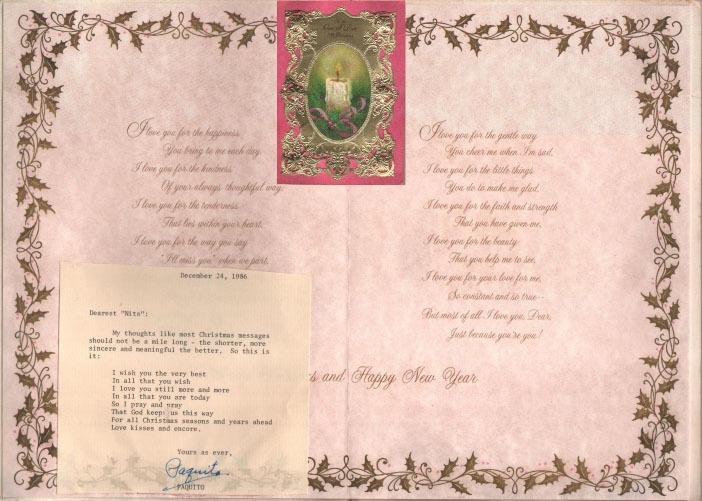 I love you for the happiness
You bring to me each day.
I love you for the kindness
Of your always thoughtful way.
I love you for the tenderness
That lies within your heart.
I love you for the way you say
"I'll miss you" when we part.
I love you for the gentle way
You cheer me when I'm sad,
I love you for the little things
You do to make me glad,
I love you for the faith and strength
That you have given me,
I love you for the beauty
That you help me to see,
I love you for your love for me,
So constant and so true--
But most of all, I love you, Dear,
Just because you're you!
and Happy New Year
December 24, 1986
Dearest "Nita":
My thoughts like most Christmas messages
should not be a mile long - the shorter, more
sincere and meaningful the better. So this is
it:
I wish you the very best
In all that you wish
I love you still more and more
In all that you are today
So I pray and pray
That God keeps us this way
For all Christmas seasons and years ahead
Love kisses and encore.
Yours as ever,
Paquito
PAQUITO